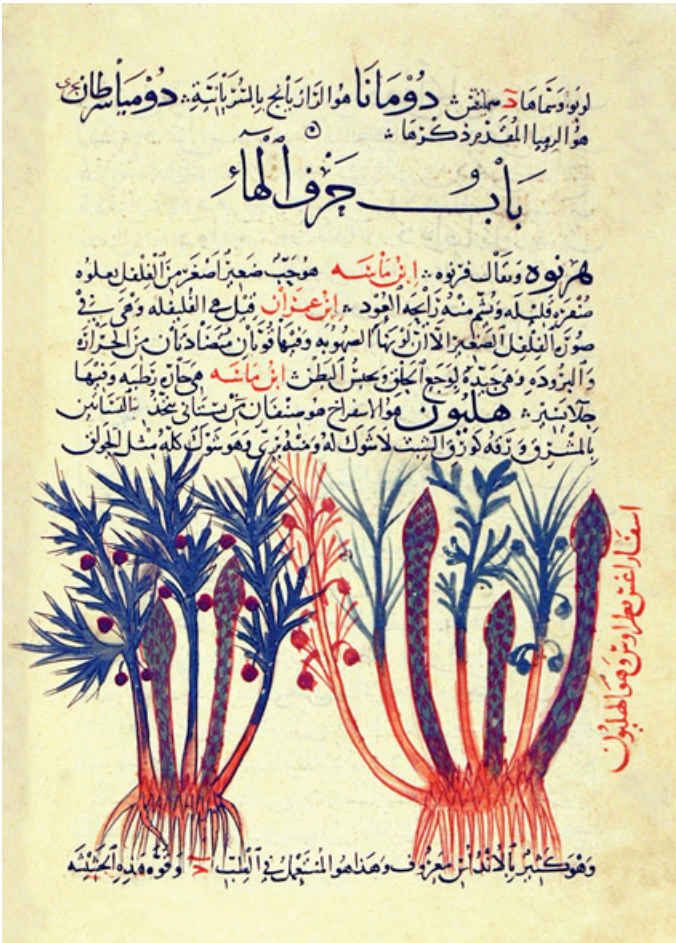 دومانا هو الرازيانج بالسريانية دومياسرطان
هو الرهبا المقدم ذكرها
باب حرف الهاء
هرنوه ويقال قرنوه ابن ماسه هو حب صغير اصغر من الفلفل يعلوه
صفره قليله ويشم منه رايحه العود ابن عمران قيل هي الفليفله وهي في
صوره الفلفل الصغير الا ان لونها الصهوبه وفيها قوتان متضادتان من الحراره
والبروده وهي جيده لوجع الحلق وتحبس البطن ابن ماسه هي حاره رطبه وفيها
هليون هو الاسفراج هو صنفان بستاني يتخذ بالبساتين
بالمشرق ورقه كورق الشبت لا شوك له ومنه بري وهو شوك كله مثل
وهو الهليون
وهو كثير بالاندلس معروف وهذا هو المستعمل في الطب وقوه هذه الحشيشه